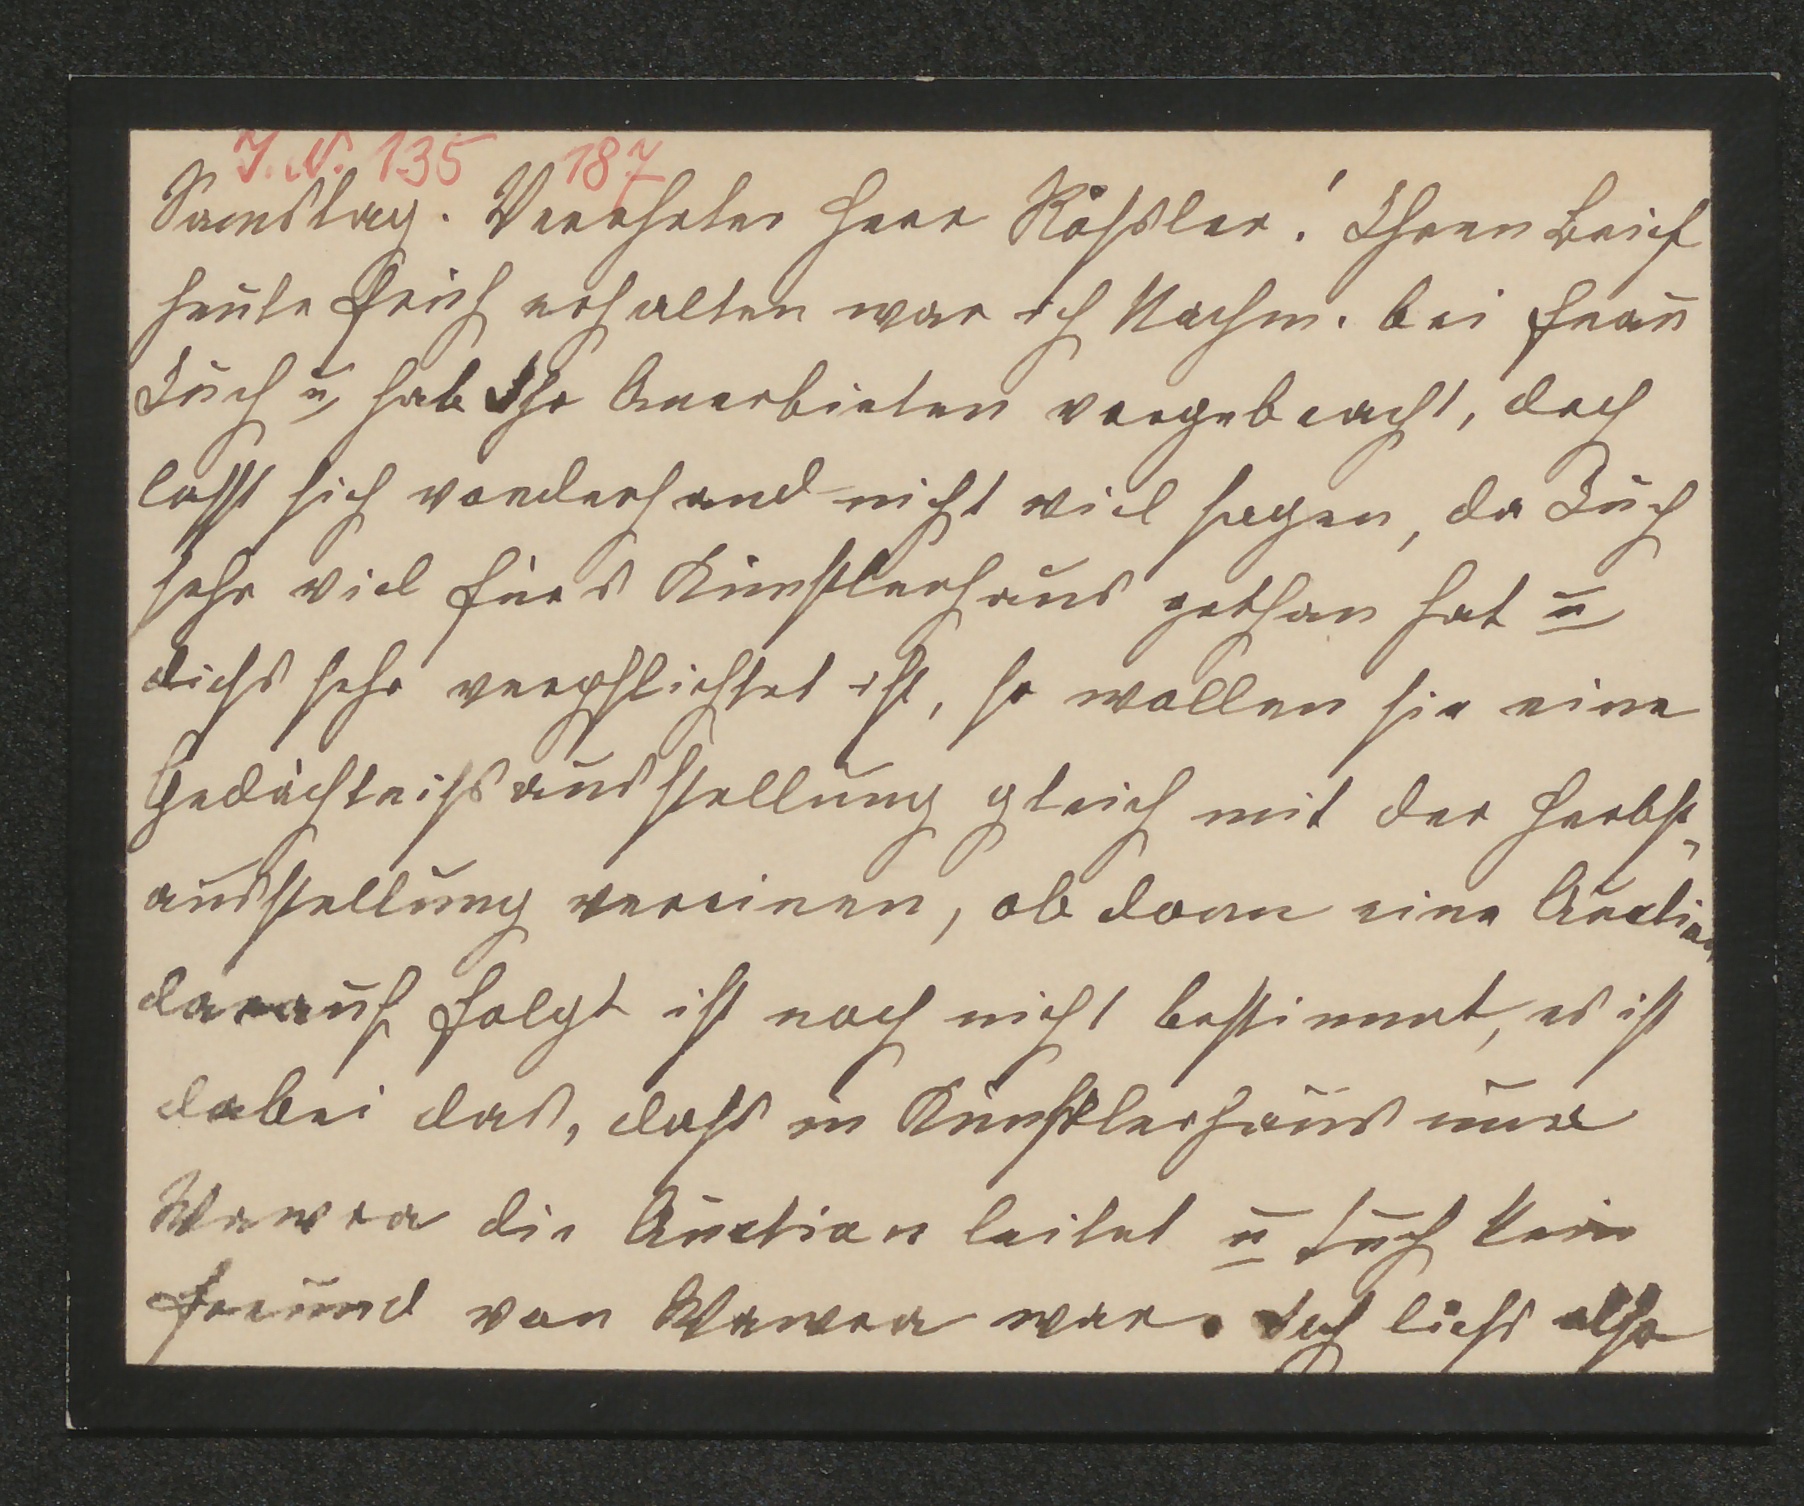 I. N. 135 187
Samstag. Verehrter Herr Rössler! Ihren Brief
heute früh erhalten war ich Nachm. bei Frau
Zuch u hab Ihr Anerbieten vorgebracht, doch
lässt sich vorderhand nicht viel sagen, da Zuch
sehr viel fürs Künstlerhaus gethan hat u
dieses sehr verpflichtet ist, so wollen sie eine
Gedächtnissausstellung gleich mit der Herbst-
ausstellung vereinen, ob dann eine Auction
darauf folgt ist noch nicht bestimmt, es ist
dabei das, dass in Künstlerhaus nur
Wawra die Auction leitet u kein
Freund von Wawra war. Ich liess also